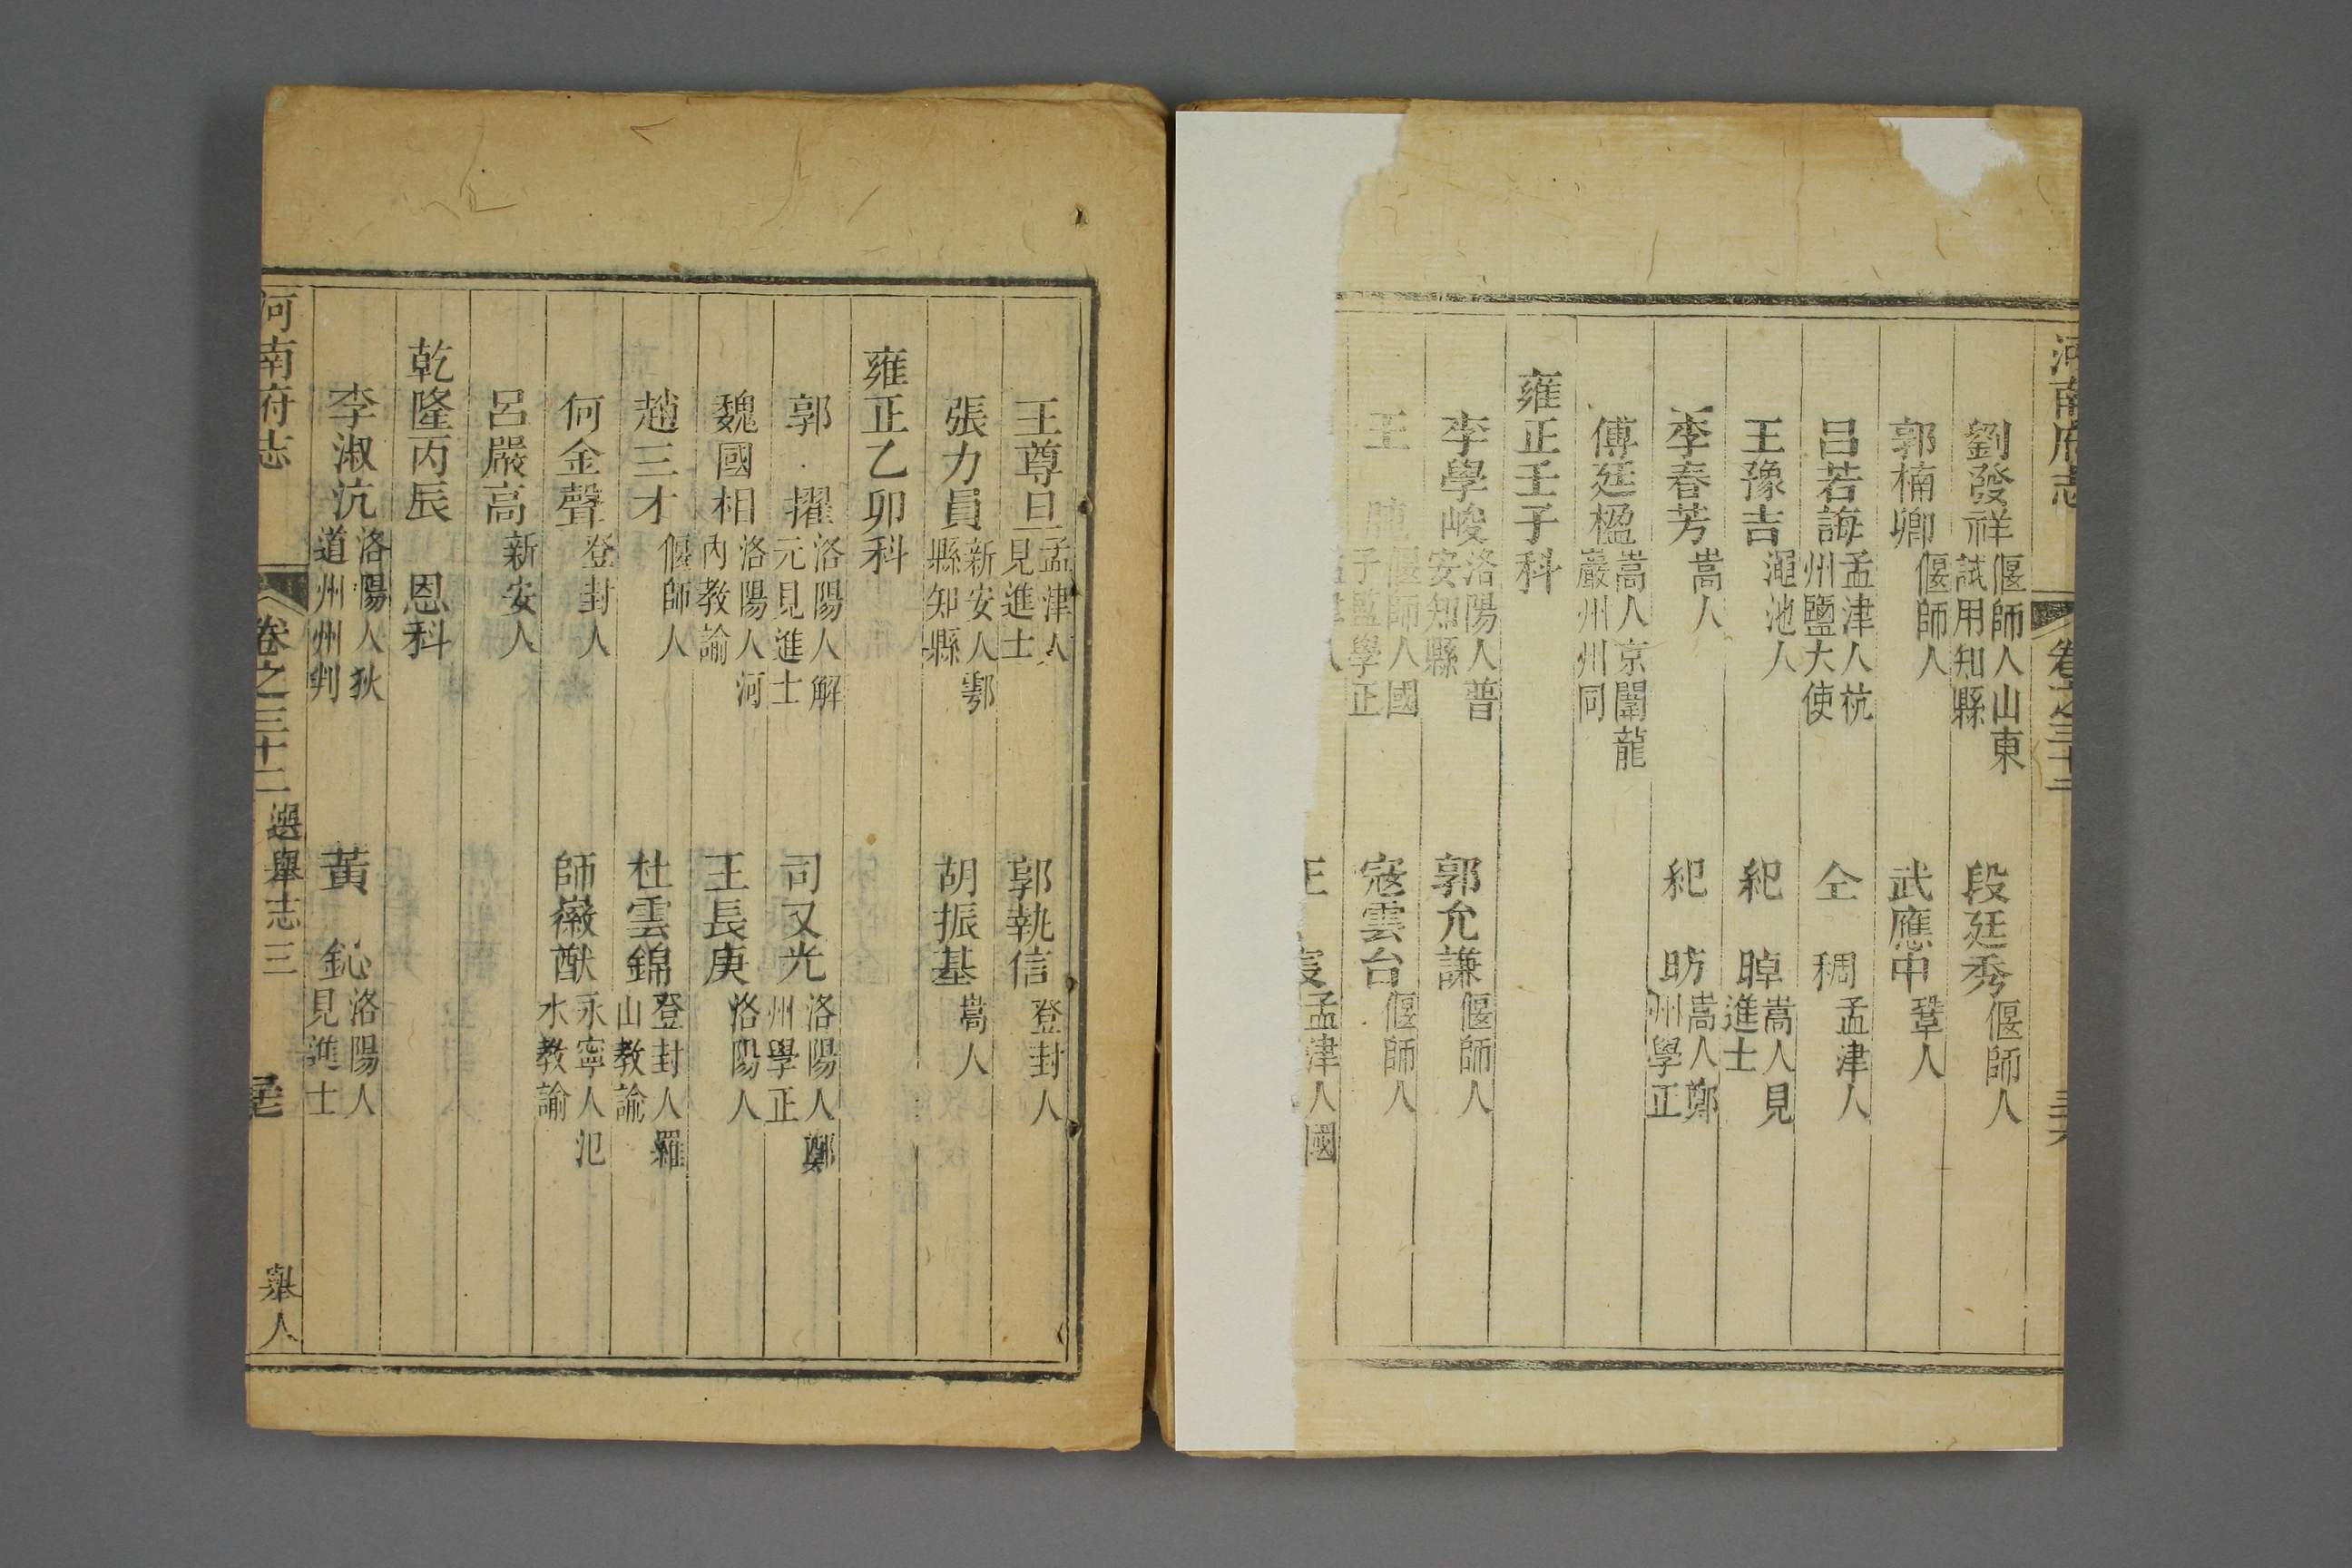 河南府志 卷之三十二
劉發祥 偃師人山東試用知縣 段廷秀 偃師人
郭楠卿 偃師人 武應中 鞏人
呂若誨 孟津人杭州鹽大使 仝稠 孟津人
王豫吉 澠池人 紀晫 嵩人見進士
李春芳 嵩人 紀昉 嵩人鄭州學正
傅廷楹 嵩人京闈龍巖州州同
雍正壬子科
李學峻 洛陽人普安知縣 郭允謙 偃師人
王 偃師人國子監學正 寇雲台 偃師人
孟津人國
王尊旦 孟津人見進士 郭執信 登封人
張力員 新安人鄠縣知縣 胡振基 嵩人
雍正乙卯科
郭擢 洛陽人解元見進士 司又光 洛陽人鄭州學正
魏國相 洛陽人河內教諭 王長庚 洛陽人
趙三才 偃師人 杜雲錦 登封人羅山教諭
何金聲 登封人 師徽猷 永寧人氾水教諭
呂嚴高 新安人
乾隆丙辰恩科
李淑沆 洛陽人狄道州州判 黃鈊 洛陽人見進士
河南府志 卷之三十二 選舉志三 舉人